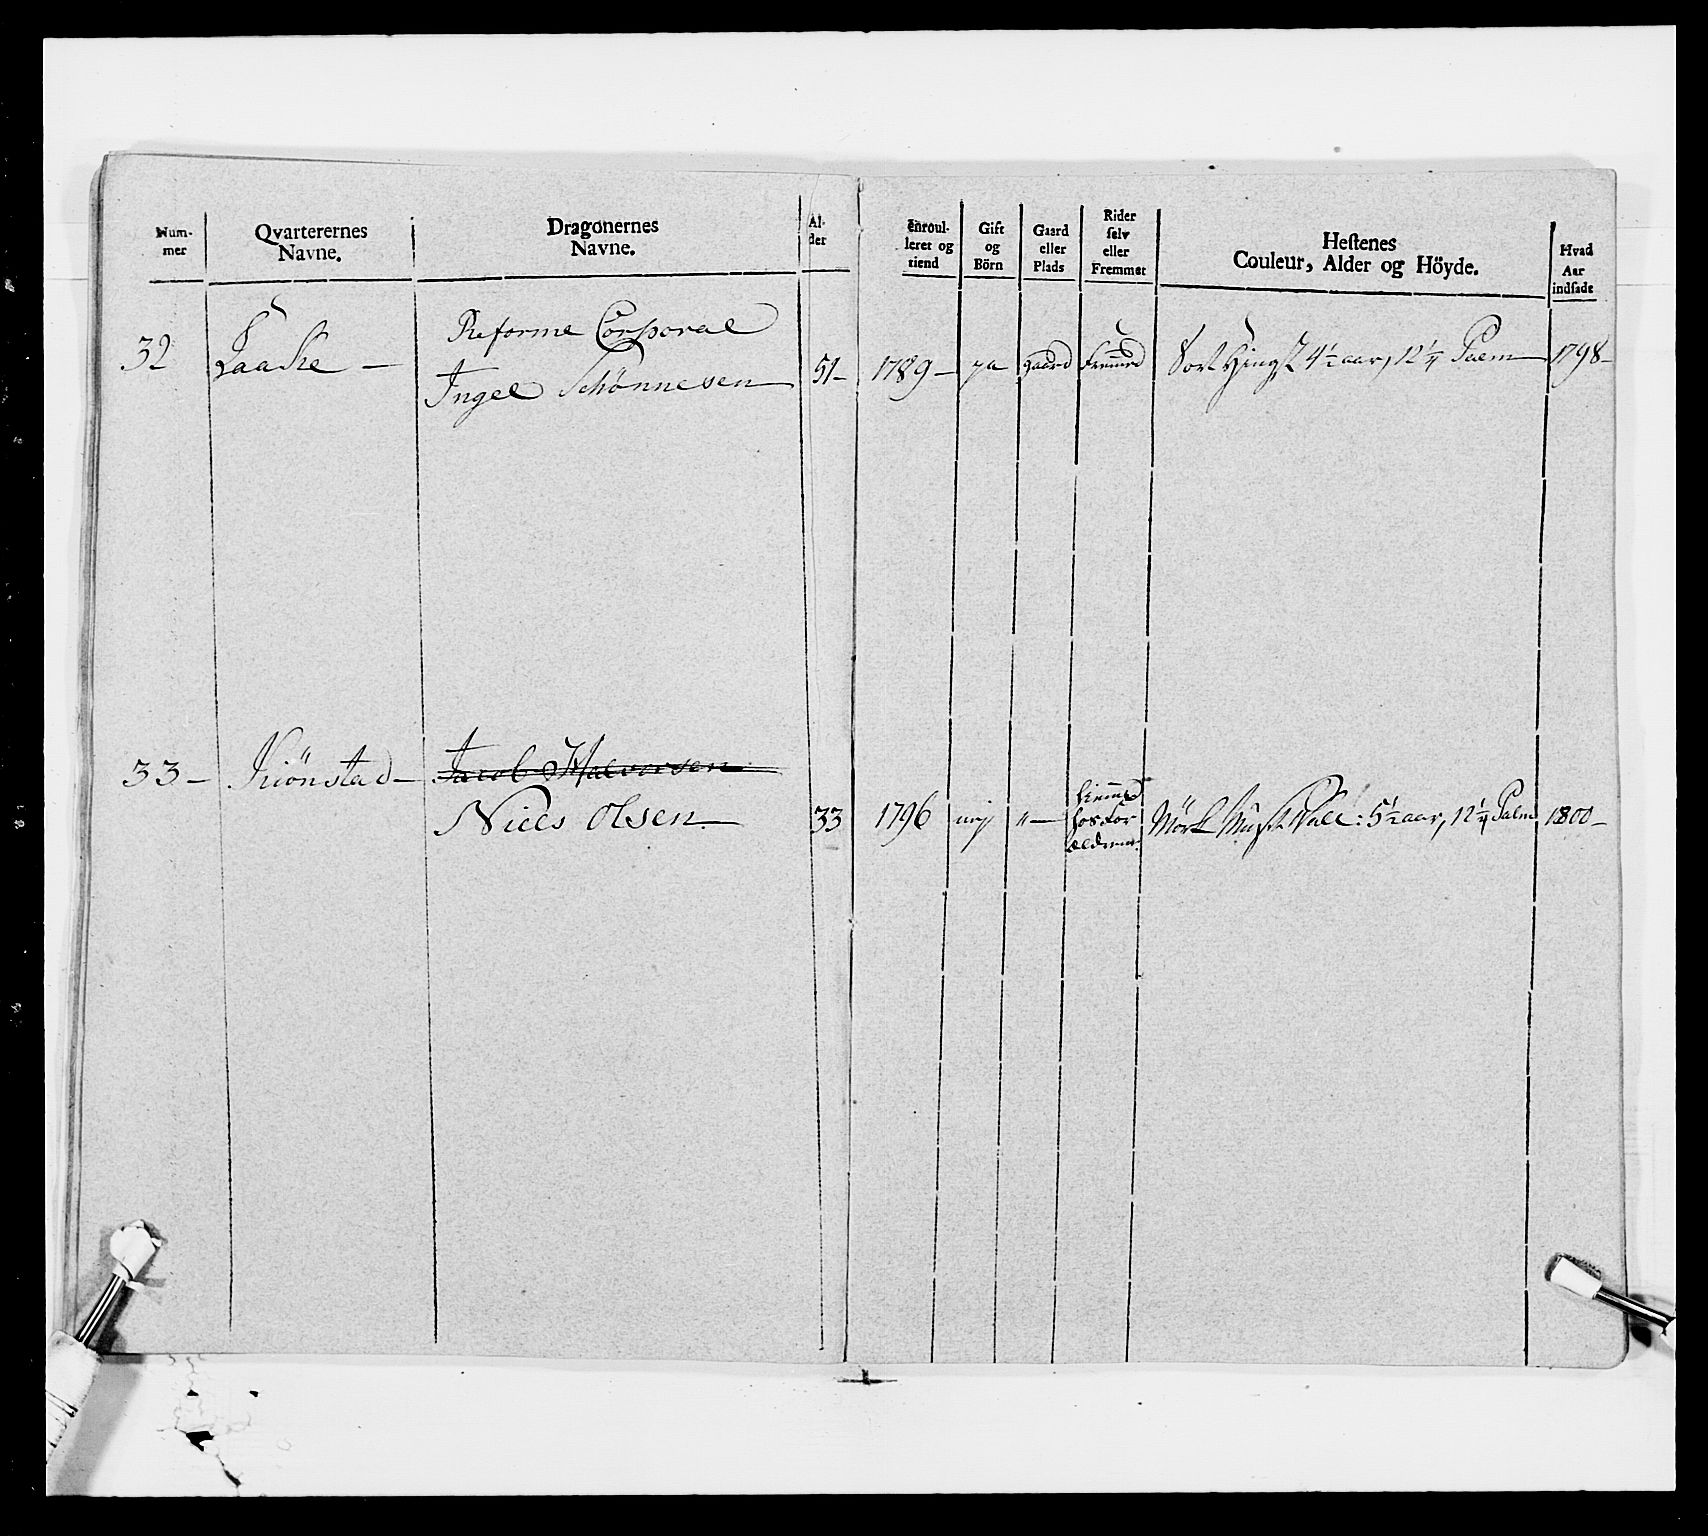 Num-
mer
Qvarterernes
Navne.
Dragonernes
Navne.
Al-
der
Enroul-
leret og
tiend
Gift
og
Börn
Gaard
eller
Plads
Rider
selv
eller
Fremmet
Hestenes
Couleur, Alder og Höyde.
Hvad
Aar
indsadt
Reforme Corporal
32 Laake — Ingel Schönnesen 51 — 1789 — ja Gaard Fremmed Sort Hingst 4½ aar, 12¼ Palm 1798 —
Jacob Halvorsen
33 — Kiönstad — Niels Olsen — 33 1796 nej " — hiemme
hos For
ældrene. Mörk Musk. Vall: 5½ aar, 12¼ Palm 1800 —